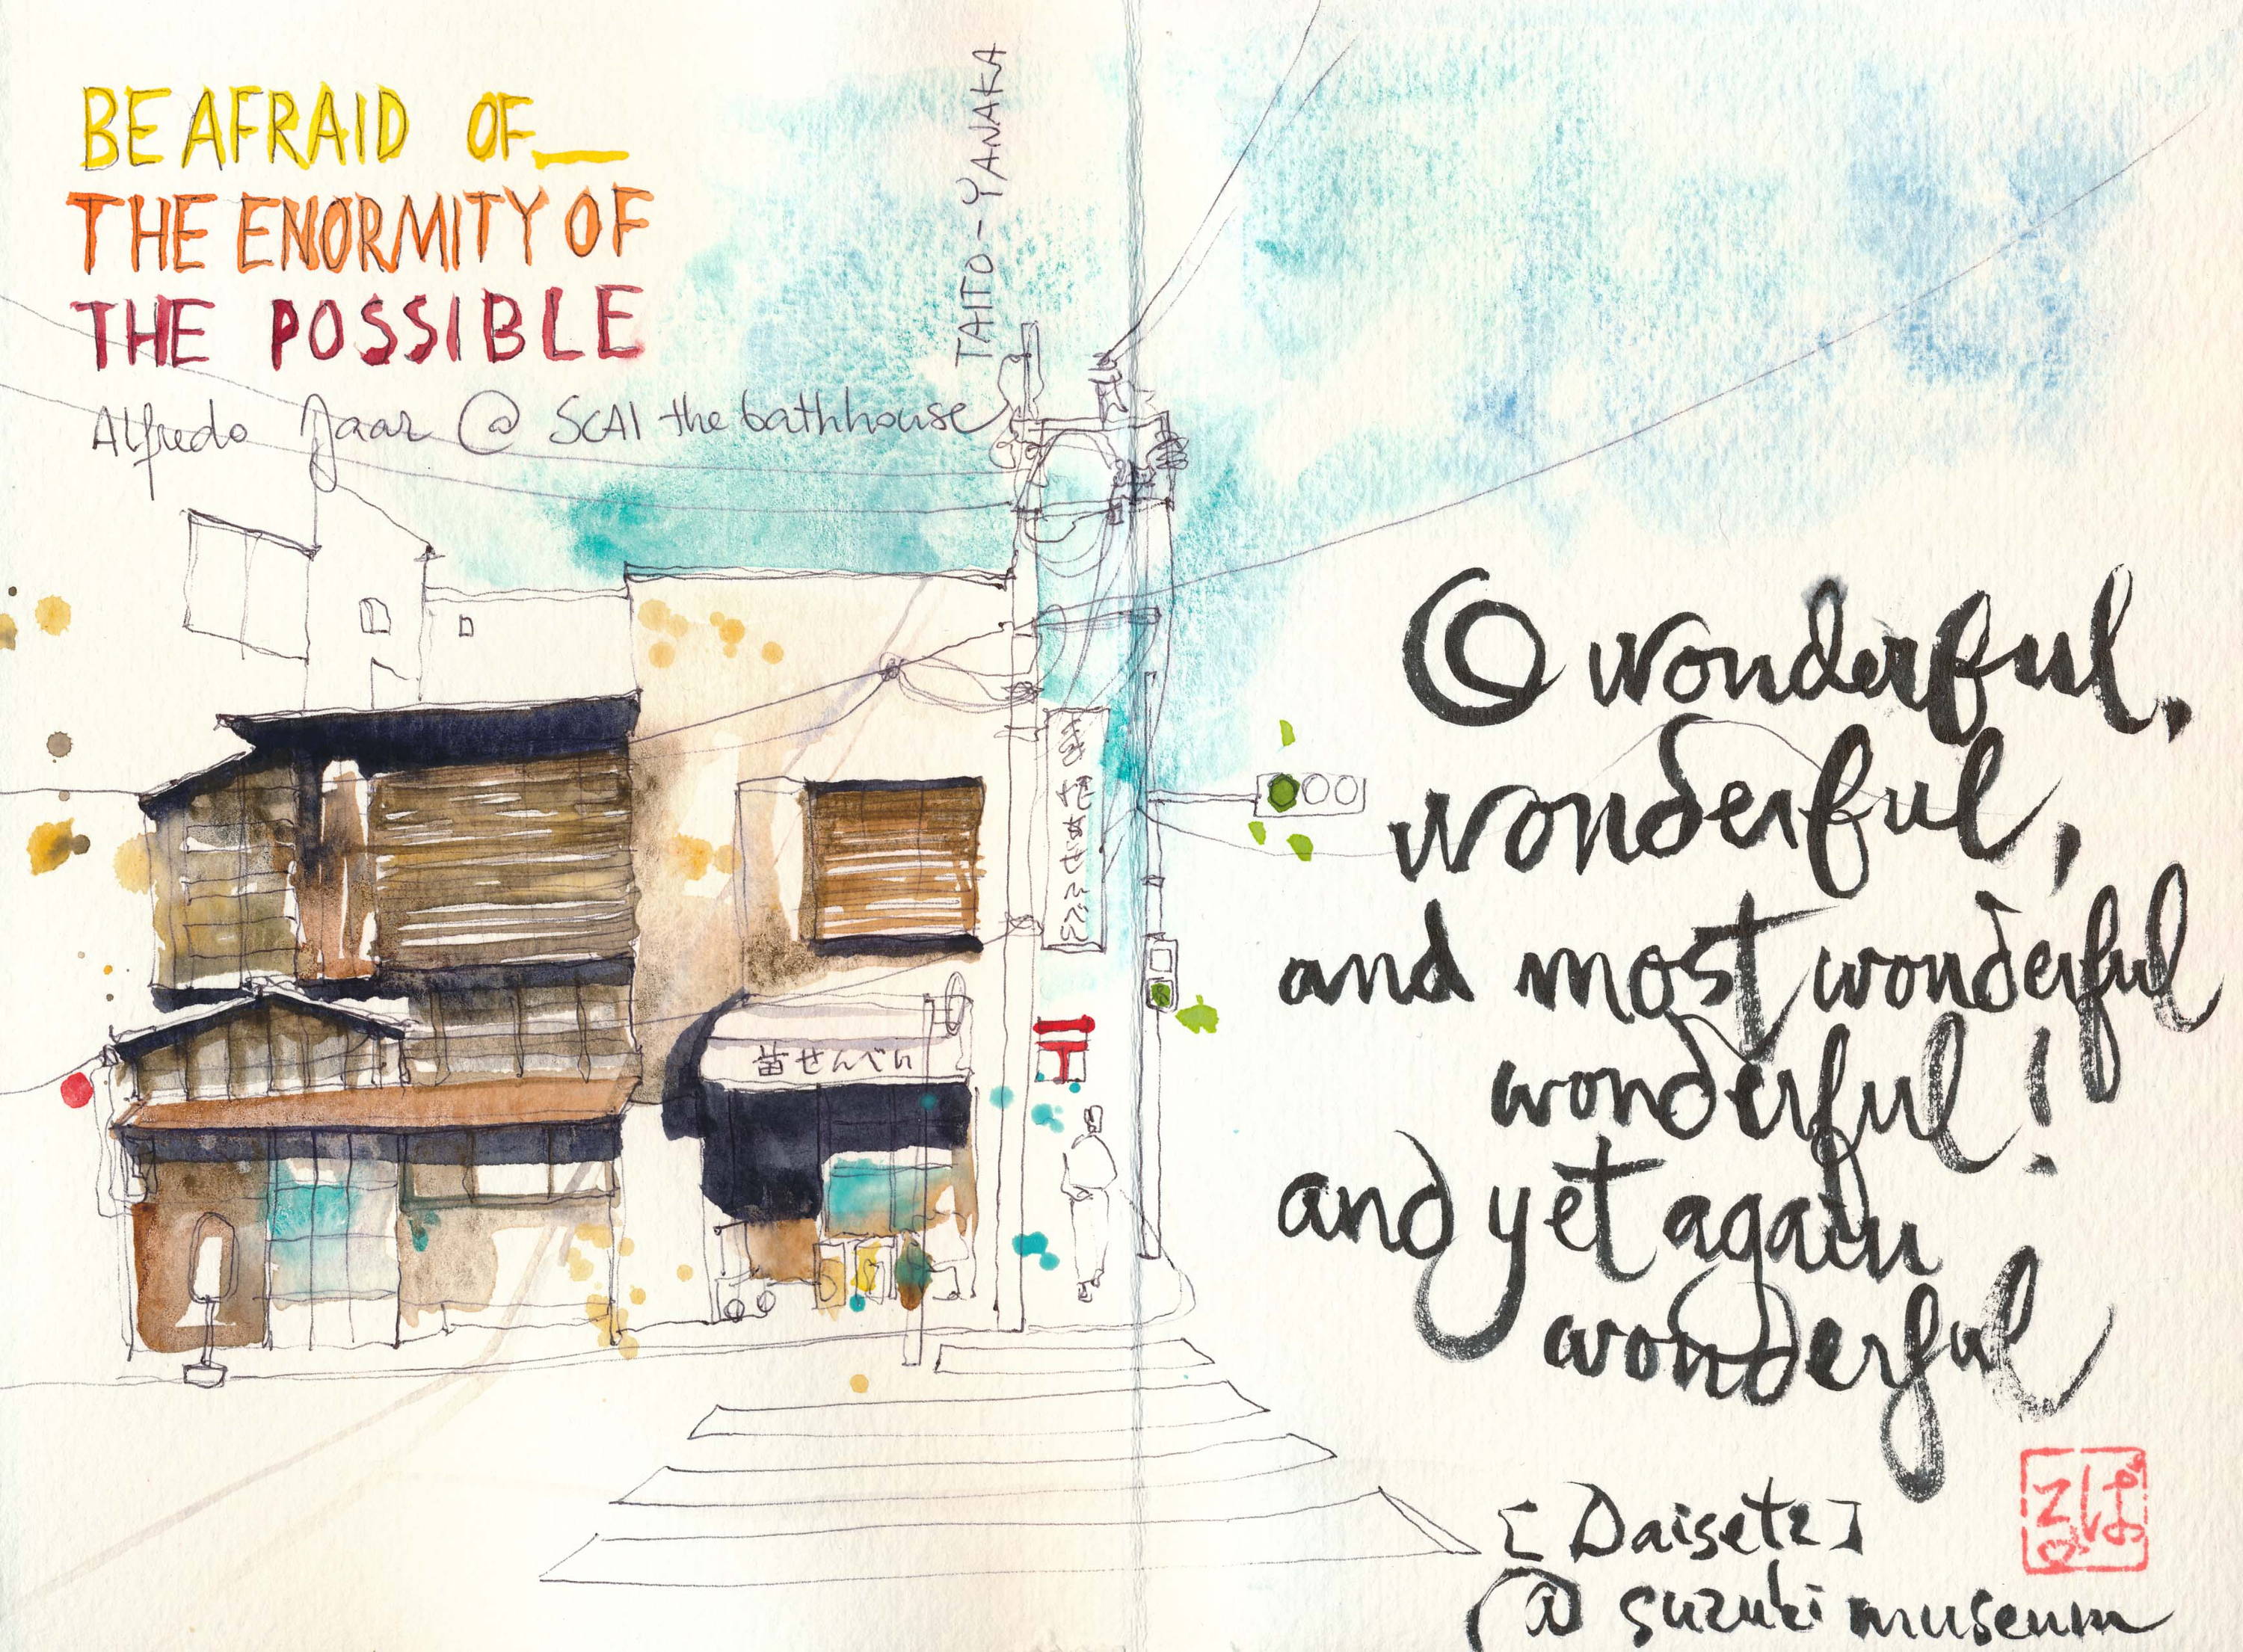 BE AFRAID OF_
THE ENORMITY OF
THE POSSIBLE
Alfredo Jaar @ SCAI the bathhouse
TAITO-YANAKA
苗せんべい
O wonderful,
wonderful,
and most wonderful
wonderful!
and yet again
wonderful
[Daisetz]
@ suzuki museum